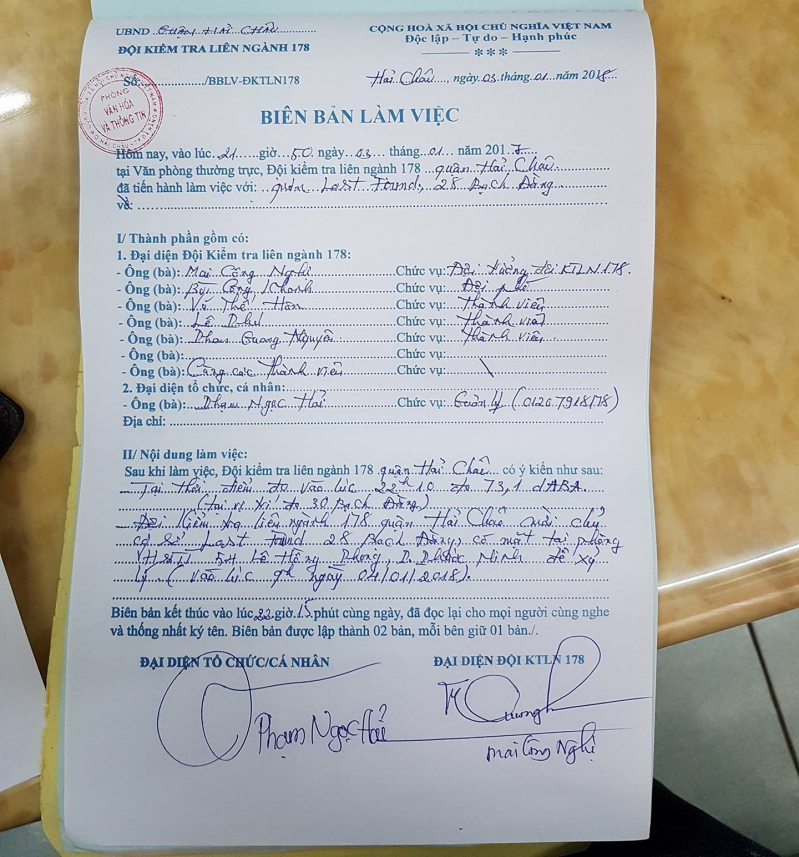 UBND Quận Hải Châu
CỘNG HOÀ XÃ HỘI CHỦ NGHĨA VIỆT NAM
ĐỘI KIỂM TRA LIÊN NGÀNH 178
Độc lập – Tự do – Hạnh phúc
***
Số:............/BBLV-ĐKTLN178
Hải Châu, ngày 03 tháng 01 năm 2018
PHÒNG
VĂN HÓA
VÀ THÔNG TIN
BIÊN BẢN LÀM VIỆC
Hôm nay, vào lúc 21 giờ 50 ngày 03 tháng 01 năm 2017
tại Văn phòng thường trực, Đội kiểm tra liên ngành 178 quận Hải Châu
đã tiến hành làm việc với: quán Last Found, 28 Bạch Đằng
về:
I/ Thành phần gồm có:
1. Đại diện Đội Kiểm tra liên ngành 178:
- Ông (bà): Mai Công Nghị Chức vụ: Đội trưởng đội KTLN 178.
- Ông (bà): Bùi Công Khanh Chức vụ: Đội phó
- Ông (bà): Vũ Thế Hân Chức vụ: Thành viên
- Ông (bà): Lê Chức vụ: Thành viên
- Ông (bà): Phan Quang Nguyên Chức vụ: Thành viên
- Ông (bà): Chức vụ:
- Ông (bà): Cùng các thành viên Chức vụ: \
2. Đại diện tổ chức, cá nhân:
- Ông (bà): Phạm Ngọc Hải Chức vụ: Quản lý (0120.7918178)
Địa chỉ:
II/ Nội dung làm việc:
Sau khi làm việc, Đội kiểm tra liên ngành 178 quận Hải Châu có ý kiến như sau:
Tại thời điểm đo vào lúc 22h10 đo 73,1 dABA.
(tại vị trí đo 30 Bạch Đằng)
Đội Kiểm tra liên ngành 178 quận Hải Châu mời chủ
cơ sở Last Found 28 Bạch Đằng, có mặt tại phòng
VHTT 54 Lê Hồng Phong, P. Phước Ninh để xử
lý (vào lúc 9h ngày 04/01/2018).
Biên bản kết thúc vào lúc 22 giờ 15 phút cùng ngày, đã đọc lại cho mọi người cùng nghe
và thống nhất ký tên. Biên bản được lập thành 02 bản, mỗi bên giữ 01 bản./.
ĐẠI DIỆN TỔ CHỨC/CÁ NHÂN
ĐẠI DIỆN ĐỘI KTLN 178
Phạm Ngọc Hải
Mai Công Nghị